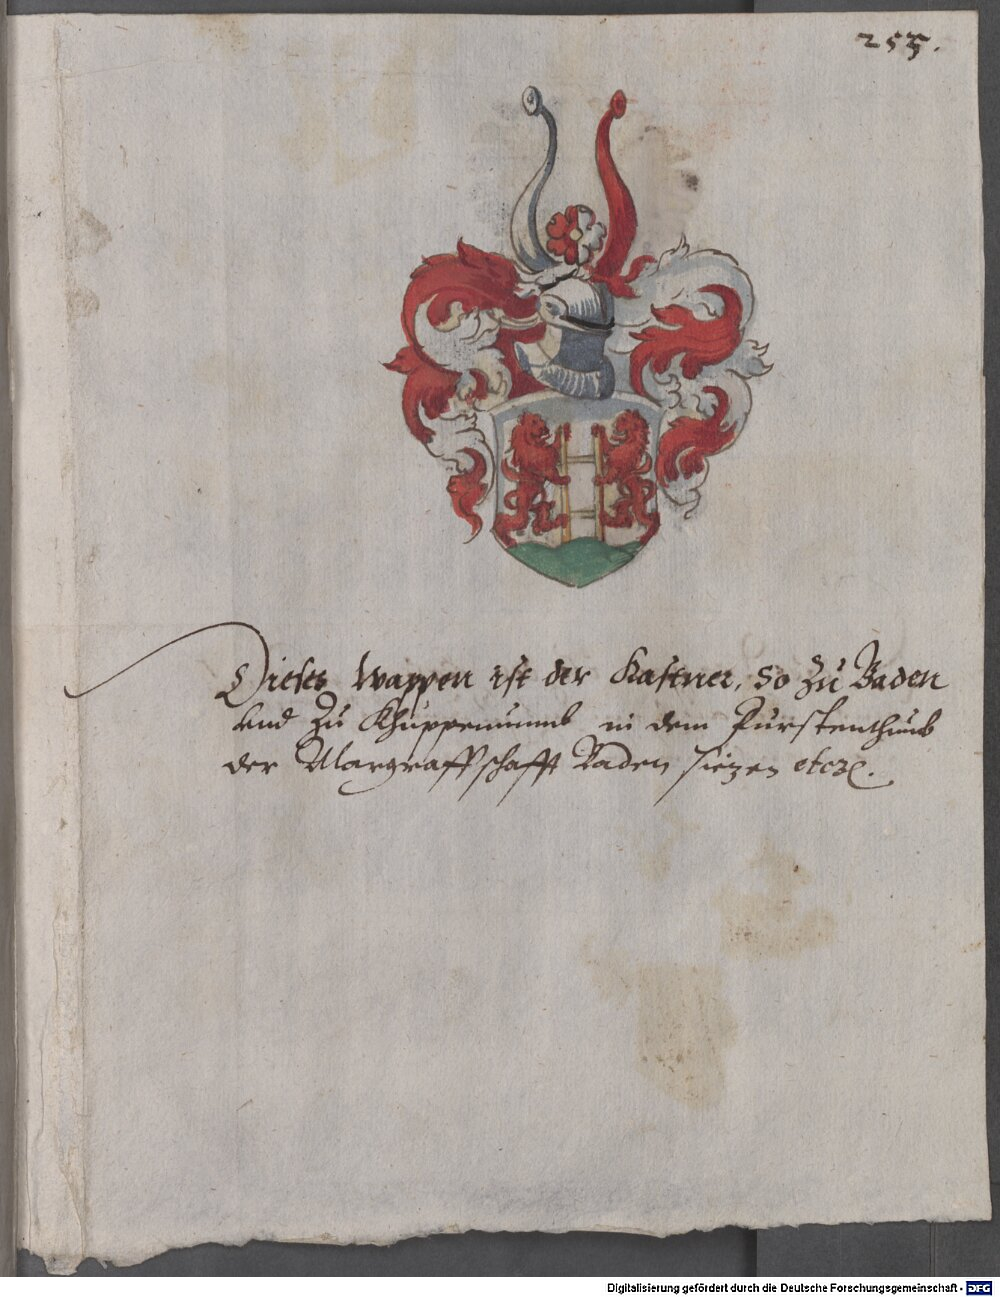 255.
Dieses Wappen ist der Kastner, So zu Baden
vnd zu Khuppenumb in dem Furstenthumb
der Margraffschafft Baden sitzen etc.
Digitalisierung gefördert durch die Deutsche Forschungsgemeinschaft - DFG